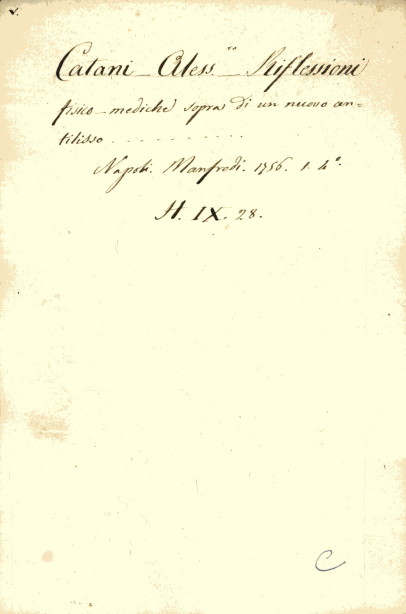 Catani _ Aless.ro _ Riflessioni
fisico-mediche sopra di un nuovo an=
tilisso . . . . . . . . . .
Napoli. Manfredi. 1756. 1. 4°.
H. IX. 28.
C